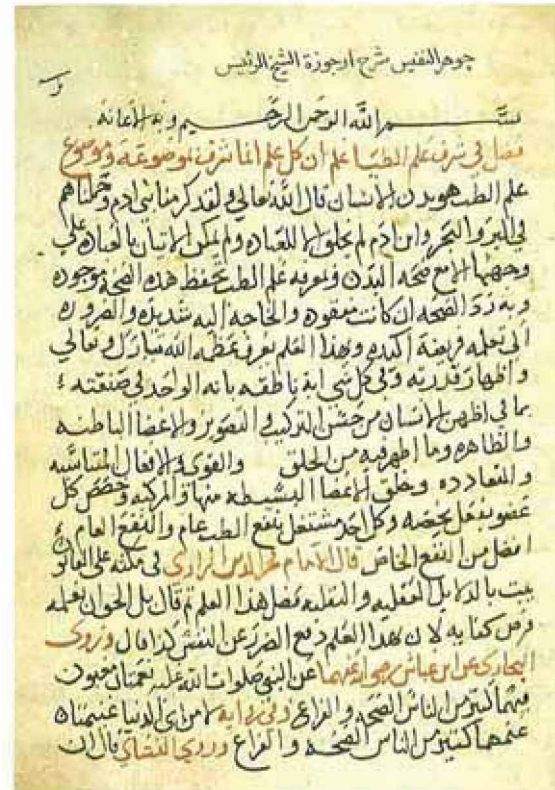 جوهر النفيس شرح ارجوزة الشيخ الرئيس
بسم الله الرحمن الرحيم وبه الاعانه
فصل في شرف علم الطب اعلم ان كل علم انما شرف بموضوعه وموضوع
علم الطب هو بدن الانسان قال الله تعالى ولقد كرمنا بني ادم وحملناهم
في البر والبحر وابن ادم لم يخلق الا للعباده ولم يمكن الاتيان بالعباده على
وجهها الا مع صحه البدن وبمعرفه علم الطب تحفظ هذه الصحه موجوده
وبه ترد الصحه ان كانت مفقوده والحاجه اليه شديده والضروره
الى تعلمه فريضة اكيده وبهذا العلم يعرف عظمه الله تبارك وتعالى
واظهار قدرته وفي كل شي اية ناطقه بانه الواحد في صنعته
بما في اظهر الانسان من حسن التركيب والتصوير والاعضا الباطنه
والظاهره وما اظهر فيه من الخلق والقوى والافعال المتناسبه
والمتعادده وبخلق الاعضا البسيطه منها والمركبه وخصص كل
عضو بفعل يخصه وكل احد مشتغل بنفع الطب عام والنفع العام
افضل من النفع الخاص قال الامام فخر الدين الرازى في على القانون
يبت بالدلايل العقليه والنقليه فضل هذا العلم ثم قال بل الحق ان تعلمه
فرض كفايه لان بهذا العلم دفع الضرر عن النفس كذا قال وروى
البخارى عن ابن عباس رضى الله عنهما عن النبي صلوات الله عليه نعمتان مغبون
فيهما كثير من الناس الصحه والفراغ وفي رواية الا من اي الدنيا غنيمتان
غنمهما كثير من الناس الصحه والفراغ وروى قال ان